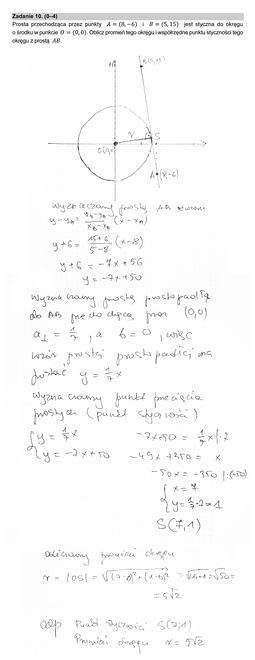 Zadanie 10. (0–4)
Prosta przechodząca przez punkty A = (8,−6) i B = (5,15) jest styczna do okręgu
o środku w punkcie O = (0,0). Oblicz promień tego okręgu i współrzędne punktu styczności tego
okręgu z prostą AB.
B(5,15)
r
S
O(0,0)
A (8,-6)
Wyznaczamy prostą AB wzorem
y-y_A = (y_B-y_A)/(x_B-x_A) (x-x_A)
y+6 = (15+6)/(5-8) (x-8)
y+6 = -7x+56
y = -7x+50
Wyznaczamy prostą prostopadłą
do AB przechodzącą przez (0,0)
a⊥ = 1/7, a b=0, więc
wzór prostej prostopadłej ma
postać y = 1/7 x
Wyznaczamy punkt przecięcia
prostych (punkt styczności)
{ y = 1/7 x
{ y = -7x+50
-7x+50 = 1/7 x |·7
-49x+350 = x
-50x = -350 |:(-50)
{ x = 7
{ y = 1/7·7 = 1
S(7,1)
r = |OS| = √(7-0)²+(1-0)² = √49+1 = √50 =
= 5√2
odp punkt styczności S(7;1)
Promień okręgu r = 5√2